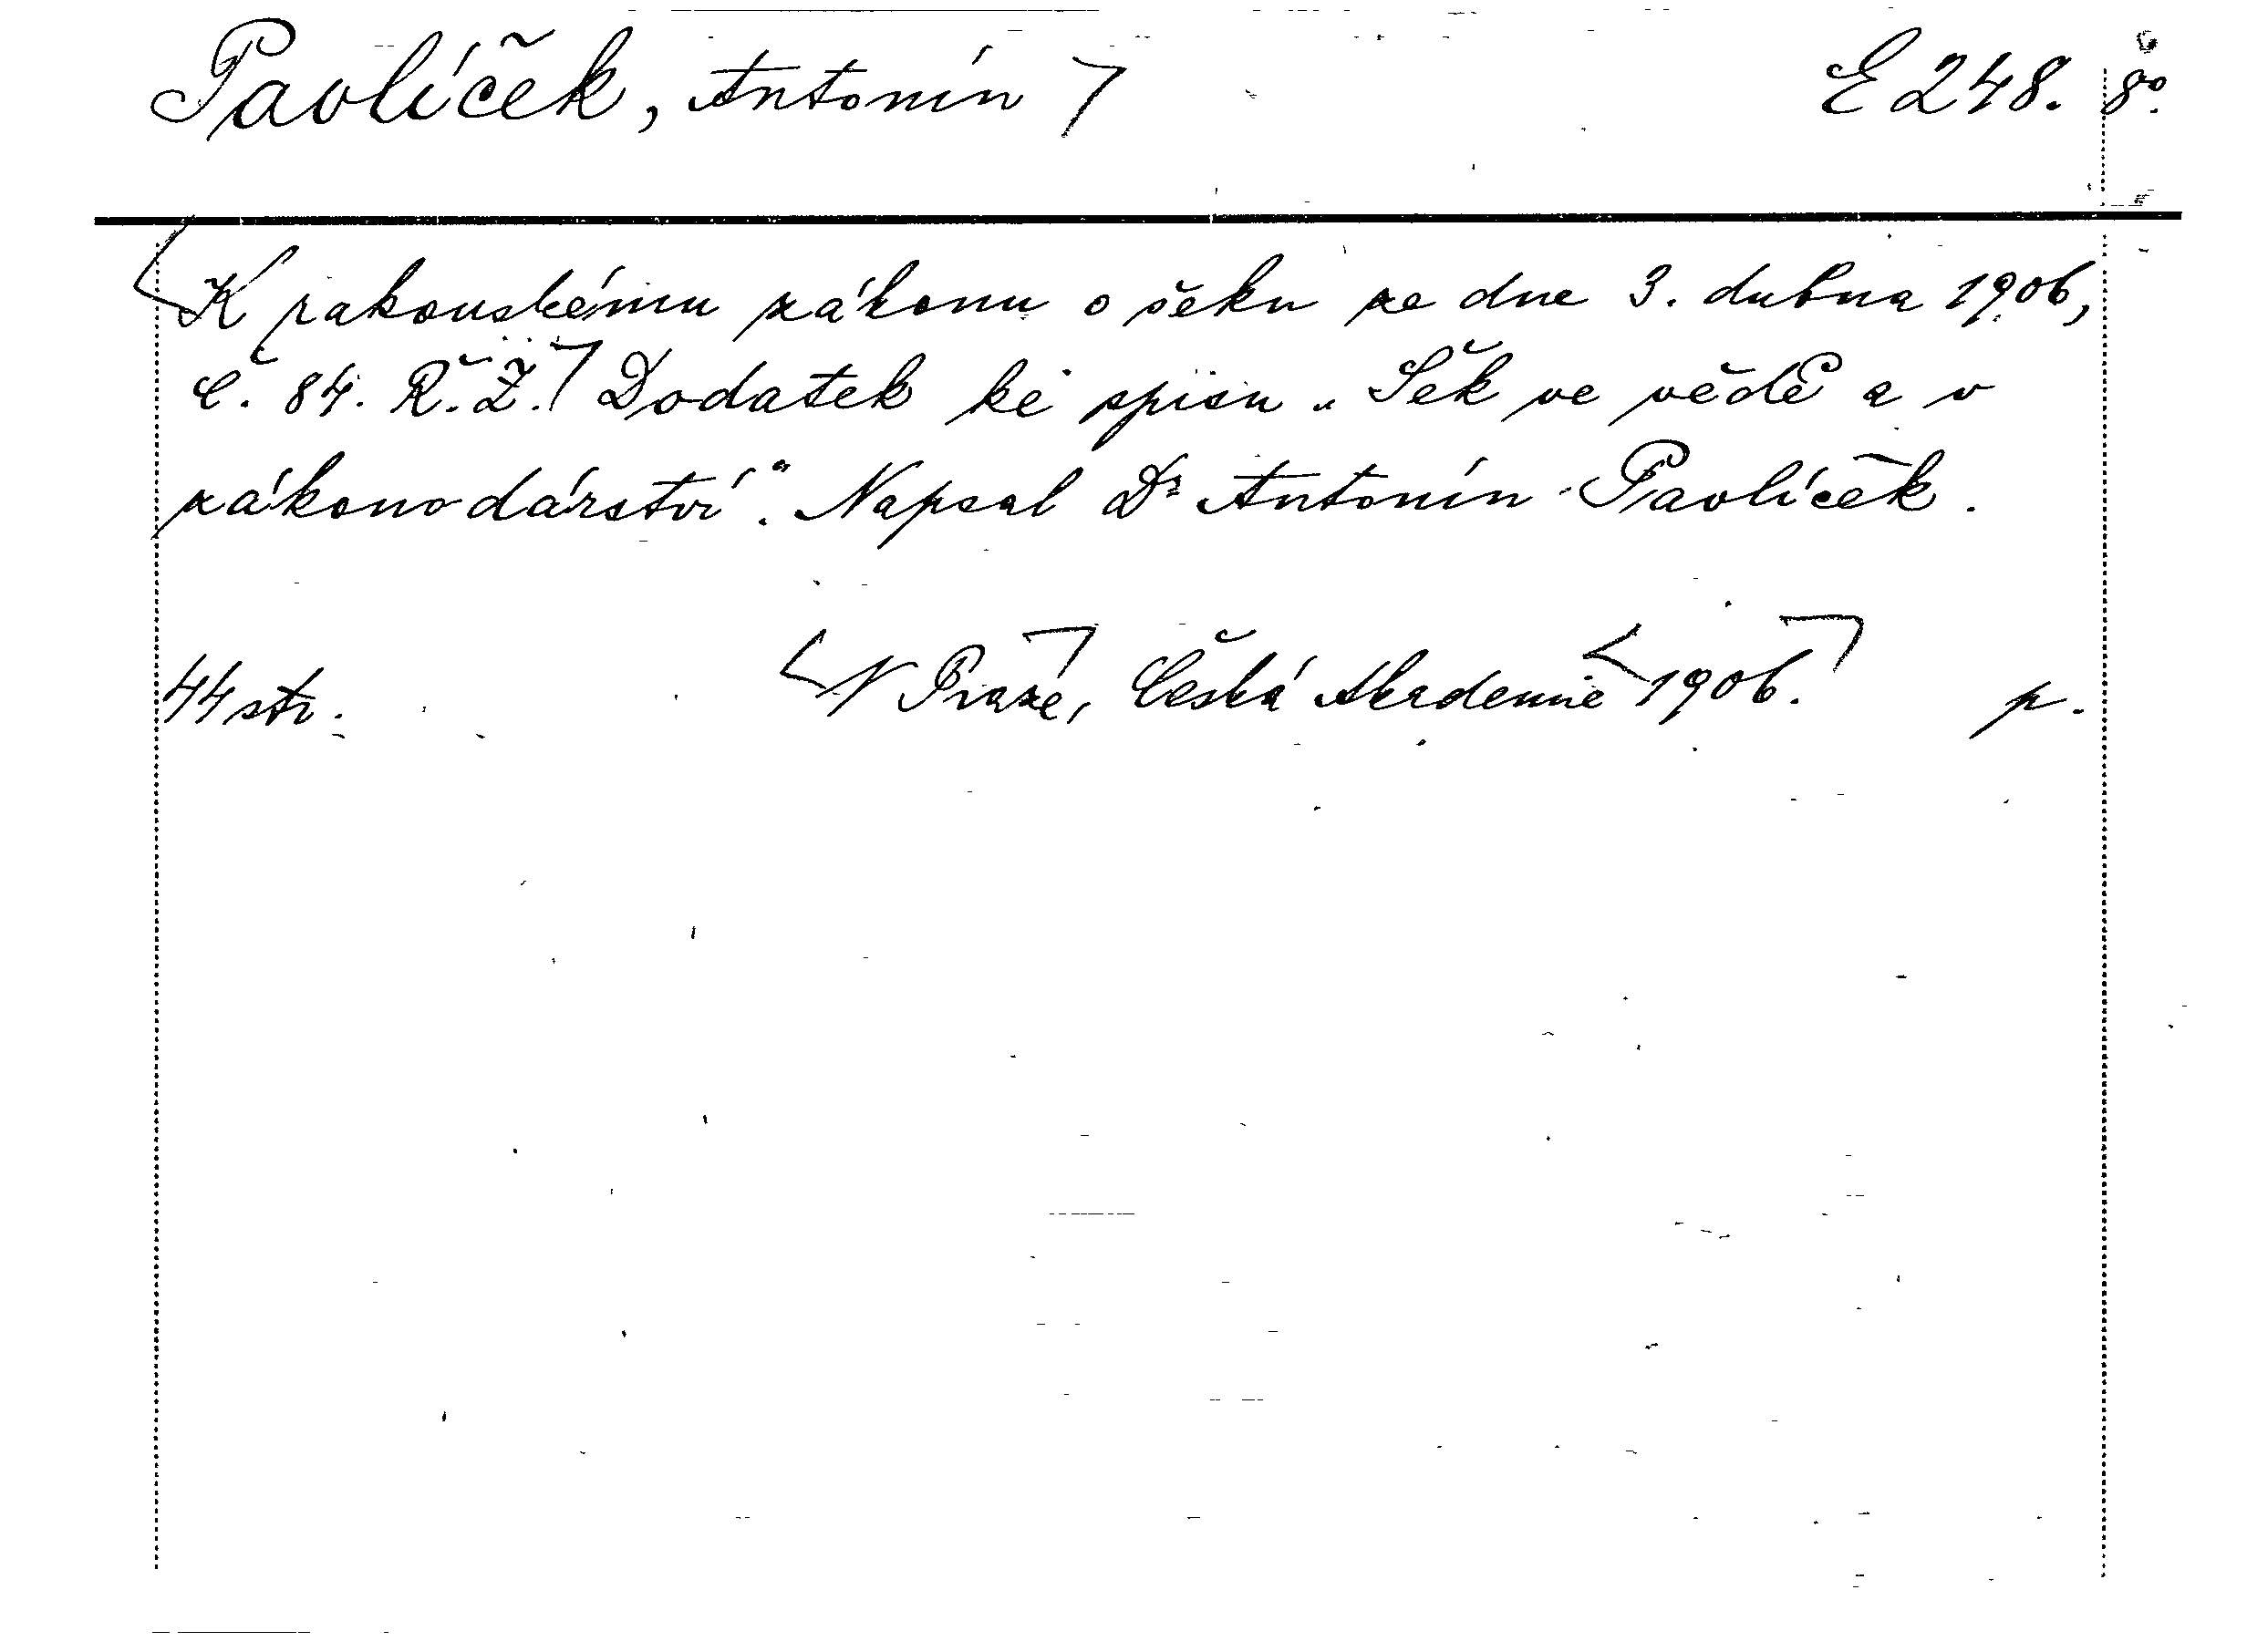 Pavlíček, Antonín E 248. 8º.
K rakouskému zákonu o šeku ze dne 3. dubna 1906,
č. 84. Ř. Ž. Dodatek ke spisu „Šek ve vědě a v
zákonodárství“. Napsal Dr Antonín Pavlíček.
44 str. V Praze, Česká Akademie 1906. p.